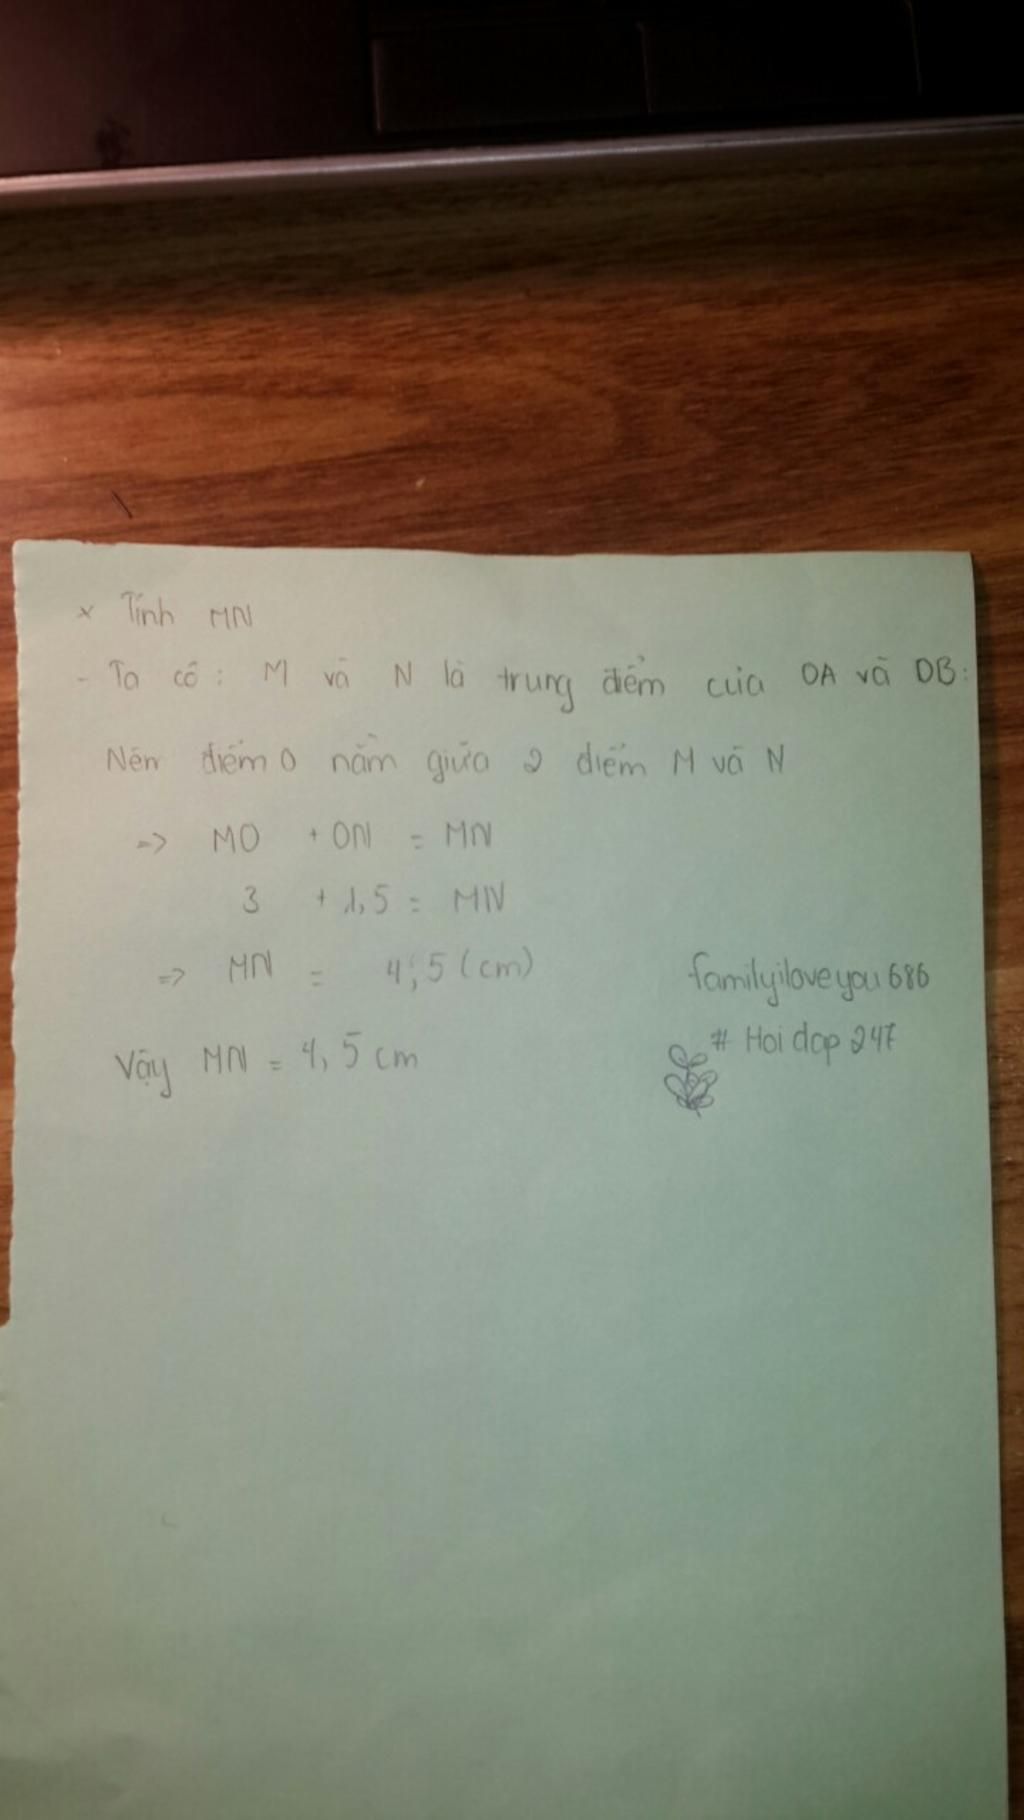 × Tính MN
- Ta có: M và N là trung điểm của OA và OB:
Nên điểm O nằm giữa 2 điểm M và N
=> MO + ON = MN
3 + 1,5 = MN
=> MN = 4,5 (cm)
Vậy MN = 4,5 cm
familyiloveyou686
# Hoidap247